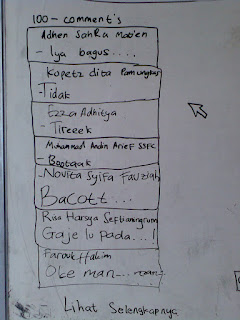 100 - comment's
Adhen SahRa Matien
- Iya bagus.....
Kopetz dita Pamungkas
- Tidak
Ezza Adhitya
- Tireeek
Muhammad Andin Arief SSFC
- Bootaak
- Novita Syifa Fauziah
Bacott...
Risa Harsya Septianingrum
Gaje lu pada...!
Farouk Hakim
Oke man....
Lihat Selengkapnya